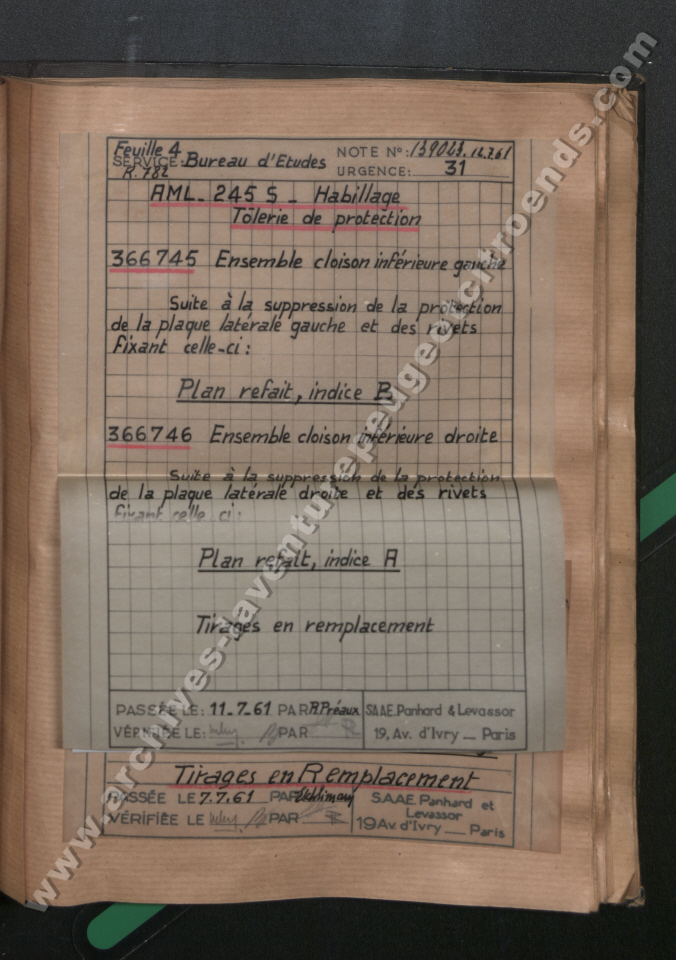 Feuille 4
SERVICE: Bureau d'Etudes
R.782
NOTE N°: 139043. 12.7.61
URGENCE: 31
AML. 245 S _ Habillage
Tôlerie de protection
366745 Ensemble cloison inférieure gauche
Suite à la suppression de la protection
de la plaque latérale gauche et des rivets
fixant celle-ci:
Plan refait, indice B
366746 Ensemble cloison inférieure droite
Suite à la suppression de la protection
de la plaque latérale droite et des rivets
fixant celle ci:
Plan refait, indice A
Tirages en remplacement
PASSÉE LE: 11-7-61 PAR R.Préaux
VÉRIFIÉE LE: PAR
S.A.A.E. Panhard & Levassor
19, Av. d'Ivry _ Paris
Tirages en Remplacement
PASSÉE LE 7.7.61 PAR
VÉRIFIÉE LE PAR
S.A.A.E. Panhard et
Levassor
19 Av. d'Ivry _ Paris
www.archives-laventurepeugeotcitroends.com